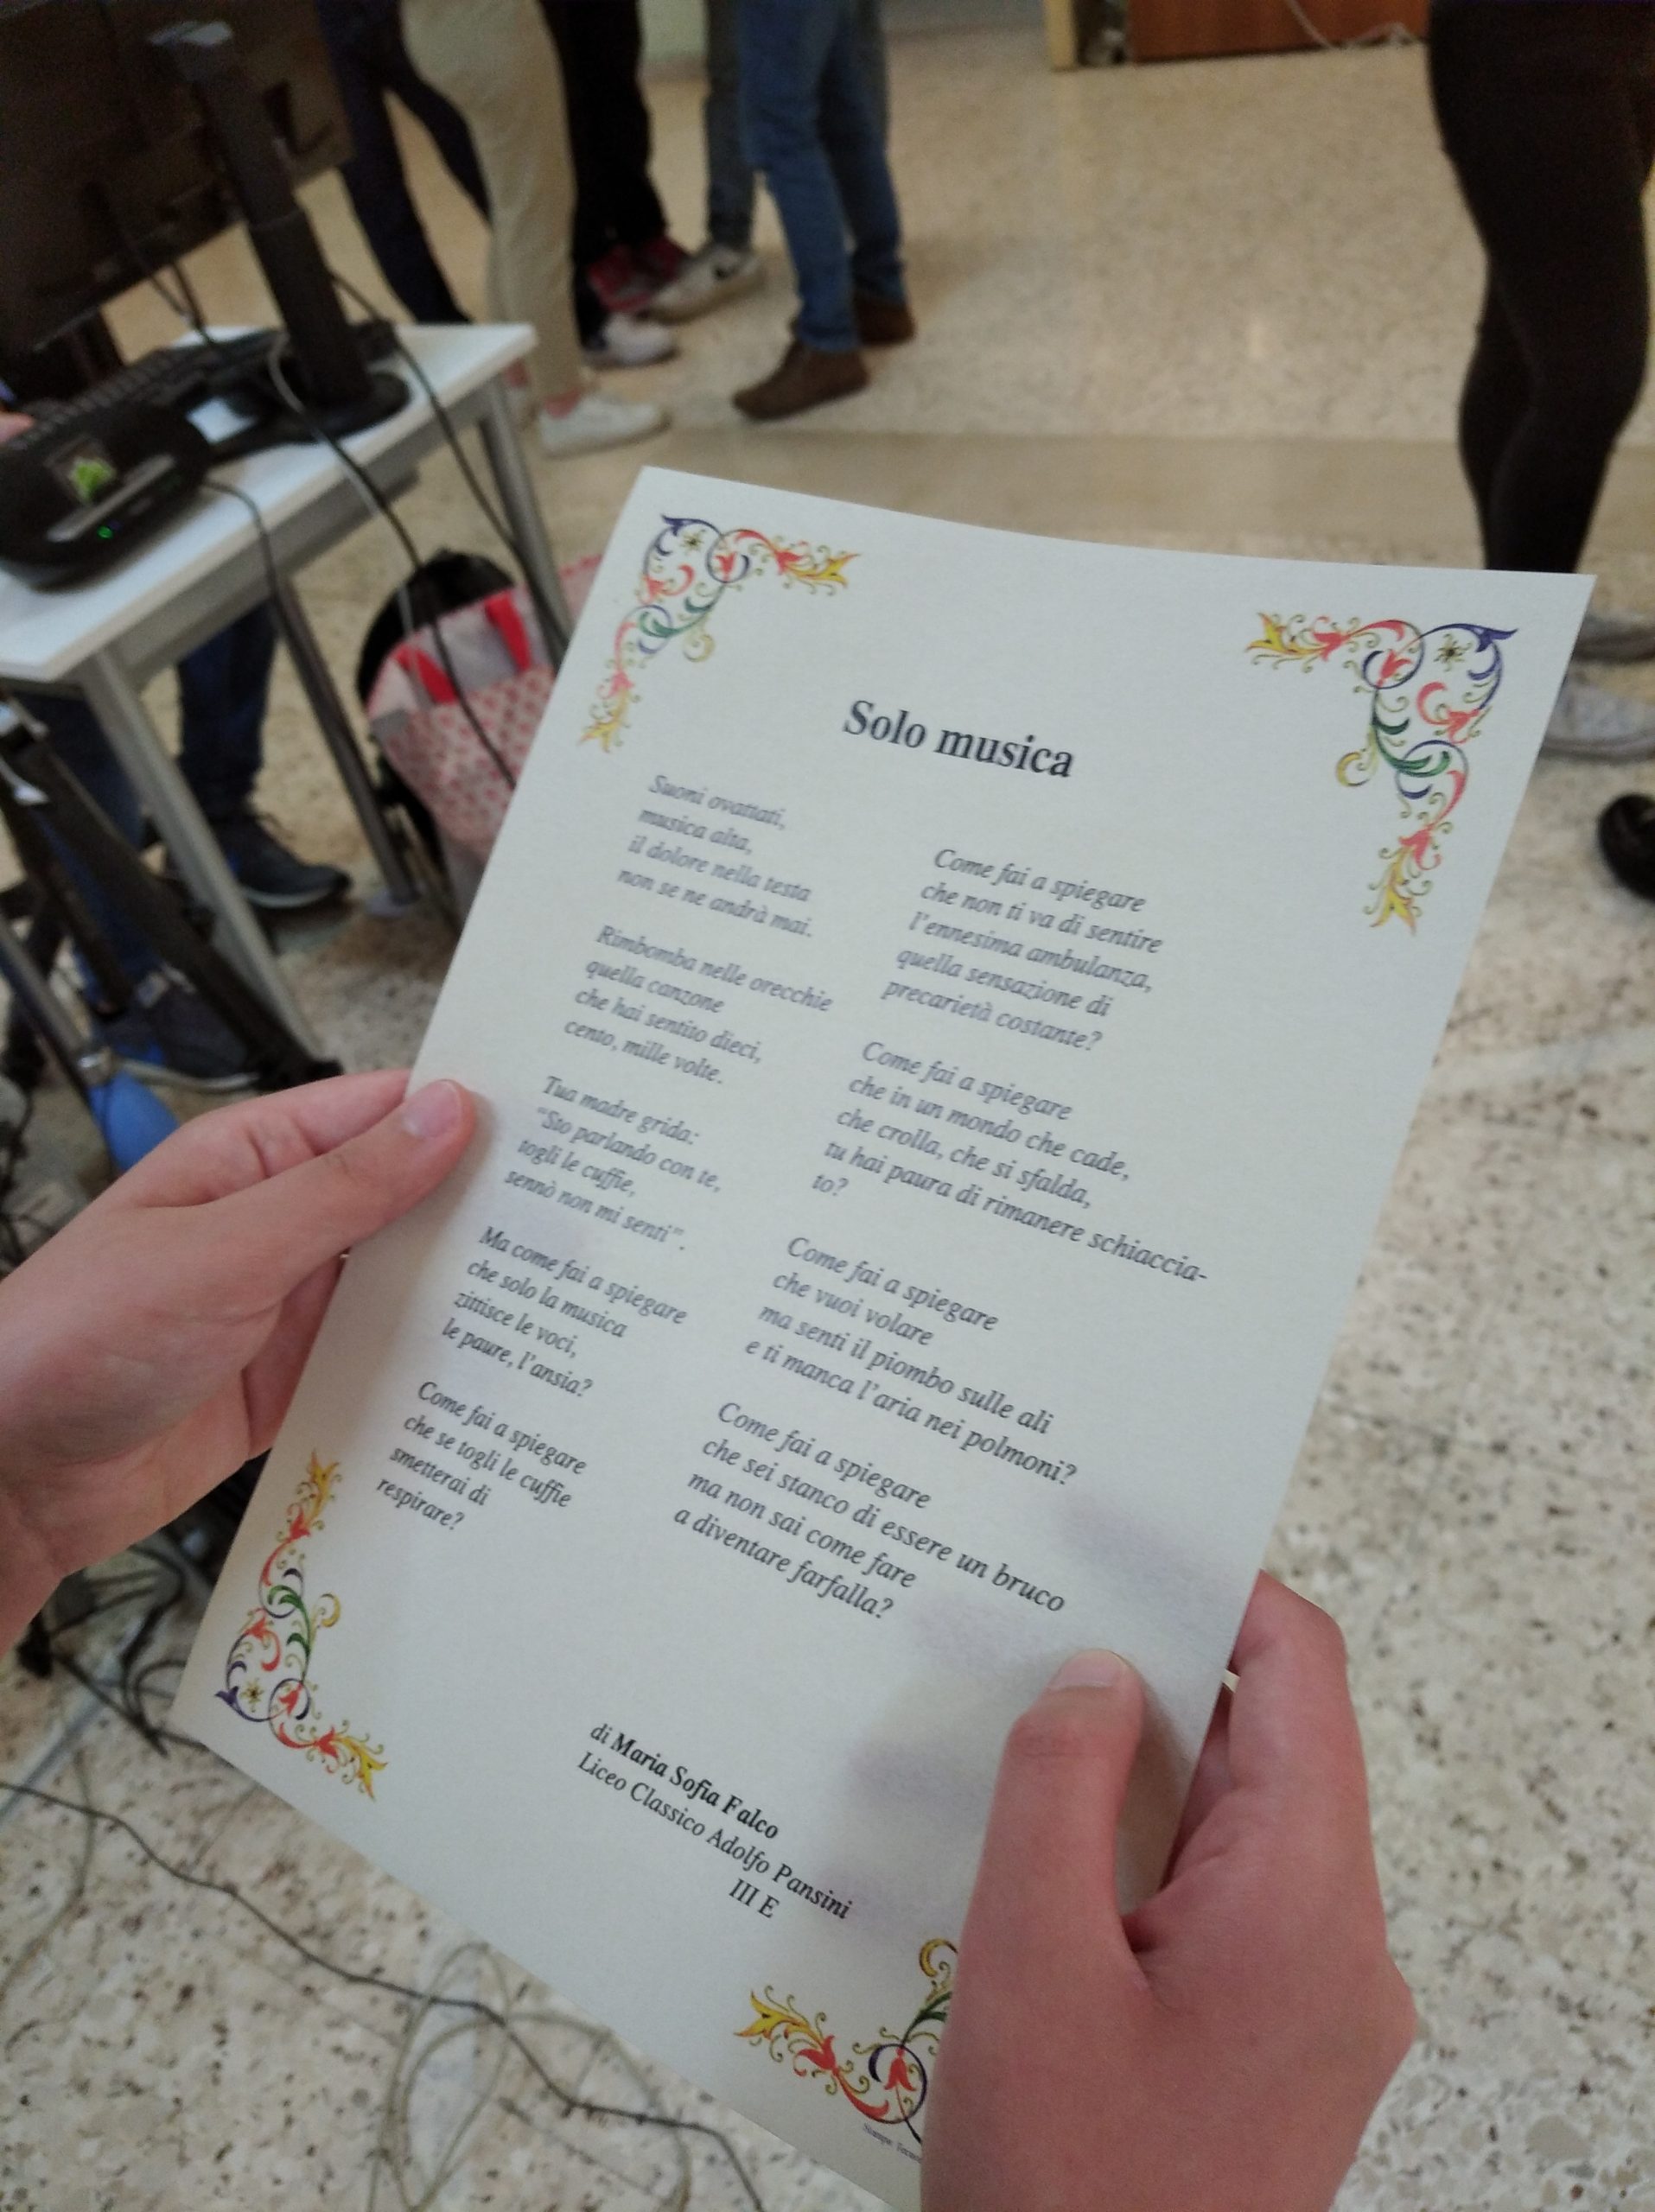 Solo musica
Suoni ovattati,
musica alta,
il dolore nella testa
non se ne andrà mai.
Rimbomba nelle orecchie
quella canzone
che hai sentito dieci,
cento, mille volte.
Tua madre grida:
“Sto parlando con te,
togli le cuffie,
sennò non mi senti”.
Ma come fai a spiegare
che solo la musica
zittisce le voci,
le paure, l’ansia?
Come fai a spiegare
che se togli le cuffie
smetterai di
respirare?
Come fai a spiegare
che non ti va di sentire
l’ennesima ambulanza,
quella sensazione di
precarietà costante?
Come fai a spiegare
che in un mondo che cade,
che crolla, che si sfalda,
tu hai paura di rimanere schiaccia-
to?
Come fai a spiegare
che vuoi volare
ma senti il piombo sulle ali
e ti manca l’aria nei polmoni?
Come fai a spiegare
che sei stanco di essere un bruco
ma non sai come fare
a diventare farfalla?
di Maria Sofia Falco
Liceo Classico Adolfo Pansini
III E